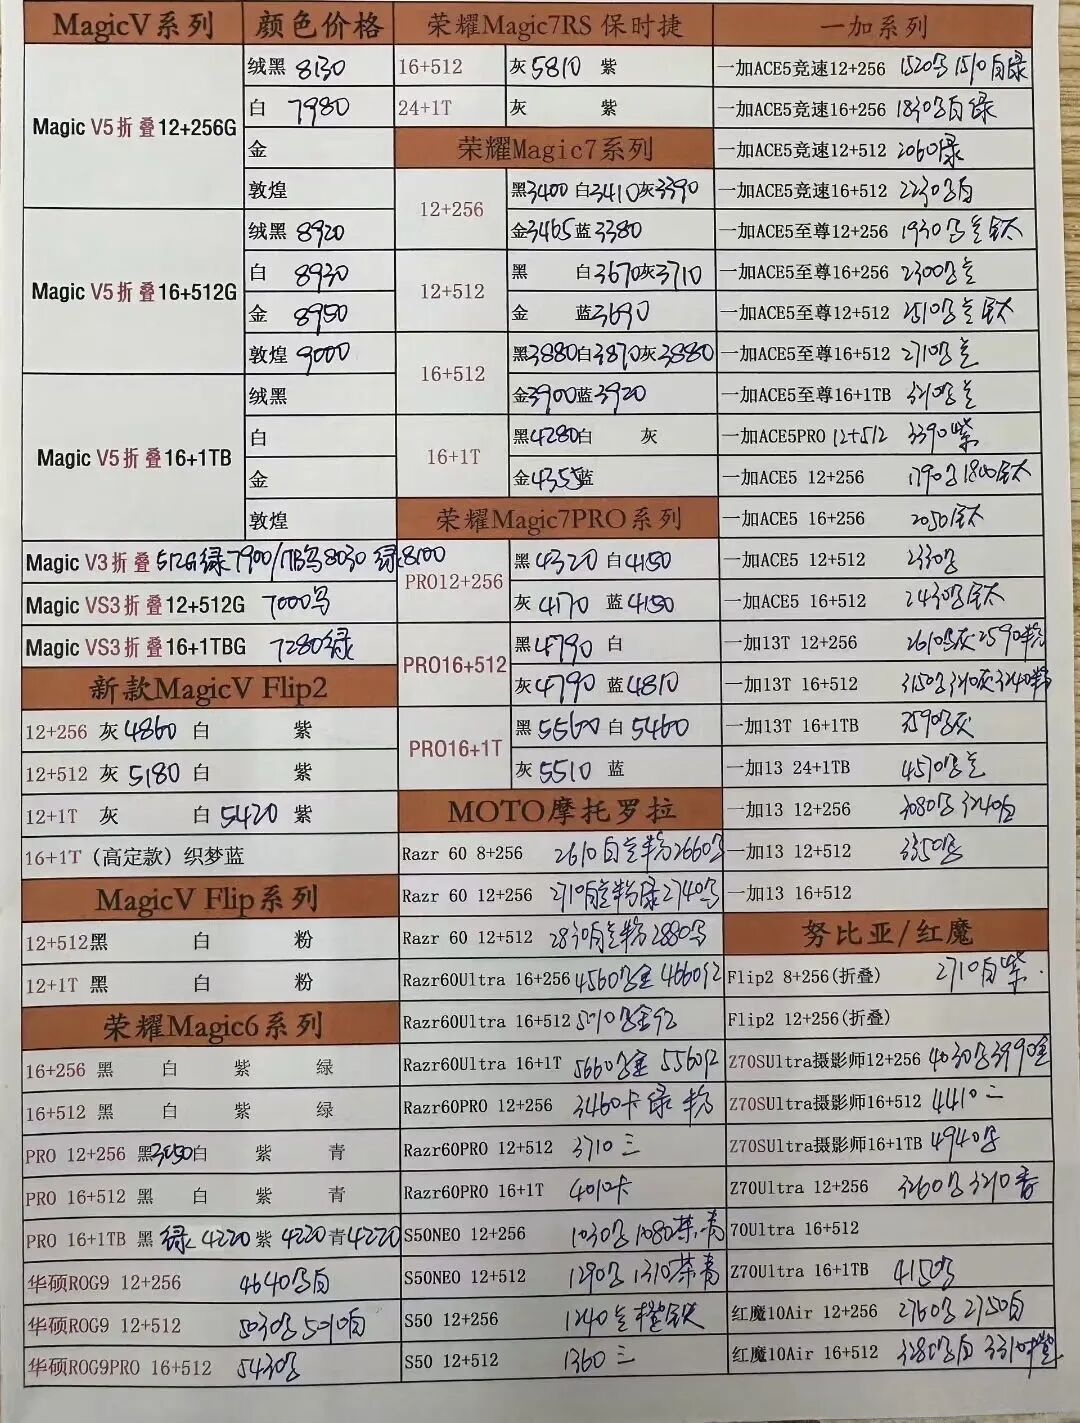 MagicV系列 颜色价格
Magic V5折叠12+256G
绒黑 8130
白 7980
金
敦煌
Magic V5折叠16+512G
绒黑 8920
白 8930
金 8950
敦煌 9000
Magic V5折叠16+1TB
绒黑
白
金
敦煌
Magic V3折叠 512G绿7900/1TB乌8030 绿8100
Magic VS3折叠12+512G 7000乌
Magic VS3折叠16+1TBG 7280绿
新款MagicV Flip2
12+256 灰 4860 白 紫
12+512 灰 5180 白 紫
12+1T 灰 白 5420 紫
16+1T（高定款）织梦蓝
MagicV Flip系列
12+512黑 白 粉
12+1T 黑 白 粉
荣耀Magic6系列
16+256 黑 白 紫 绿
16+512 黑 白 紫 绿
PRO 12+256 黑 白 紫 青
PRO 16+512 黑 白 紫 青
PRO 16+1TB 黑 绿 4220 紫 4220 青4220
华硕ROG9 12+256 4640 白
华硕ROG9 12+512
华硕ROG9PRO 16+512 5430
荣耀Magic7RS 保时捷
16+512 灰 5810 紫
24+1T 灰 紫
荣耀Magic7系列
12+256
黑3400 白3410灰3390
金3465蓝3380
12+512
黑 白3670灰3710
金 蓝3690
16+512
黑3880白3870灰3880
金3900蓝3920
16+1T
黑4280白 灰
金4355蓝
荣耀Magic7PRO系列
PRO12+256
黑 4320 白4150
灰 4170 蓝4150
PRO16+512
黑4790 白
灰 4790 蓝4810
PRO16+1T
黑 5560 白 5460
灰 5510 蓝
MOTO摩托罗拉
Razr 60 8+256 2610 白 粉 2660
Razr 60 12+256 2710 粉绿2740
Razr 60 12+512 2830 粉 2880
Razr60Ultra 16+256 4560 金 4660红
Razr60Ultra 16+512 金红
Razr60Ultra 16+1T 5660 金 5560红
Razr60PRO 12+256 3460卡 绿 粉
Razr60PRO 12+512 3710 三
Razr60PRO 16+1T 4010卡
S50NEO 12+256 1030 1080茶青
S50NEO 12+512 1290 1310茶青
S50 12+256 1240 橙
S50 12+512 1360 三
一加系列
一加ACE5竞速12+256 1520 1510白绿
一加ACE5竞速16+256 1830 白绿
一加ACE5竞速12+512 2060绿
一加ACE5竞速16+512 2230 白
一加ACE5至尊12+256 1930 钛
一加ACE5至尊16+256 2300
一加ACE5至尊12+512 2510 钛
一加ACE5至尊16+512 2710
一加ACE5至尊16+1TB
一加ACE5PRO 12+512 3390紫
一加ACE5 12+256 1790 1800钛
一加ACE5 16+256 2050钛
一加ACE5 12+512 2330
一加ACE5 16+512 2430 钛
一加13T 12+256 2610 灰2590粉
一加13T 16+512
一加13T 16+1TB 3590 灰
一加13 24+1TB
一加13 12+256
一加13 12+512 3350
一加13 16+512
努比亚/红魔
Flip2 8+256(折叠) 2710白紫
Flip2 12+256(折叠)
Z70SUltra摄影师12+256 4030 3990
Z70SUltra摄影师16+512 4410 二
Z70SUltra摄影师16+1TB 4940
Z70Ultra 12+256 3260
70Ultra 16+512
Z70Ultra 16+1TB 4150
红魔10Air 12+256 2760 2750白
红魔10Air 16+512 3310橙